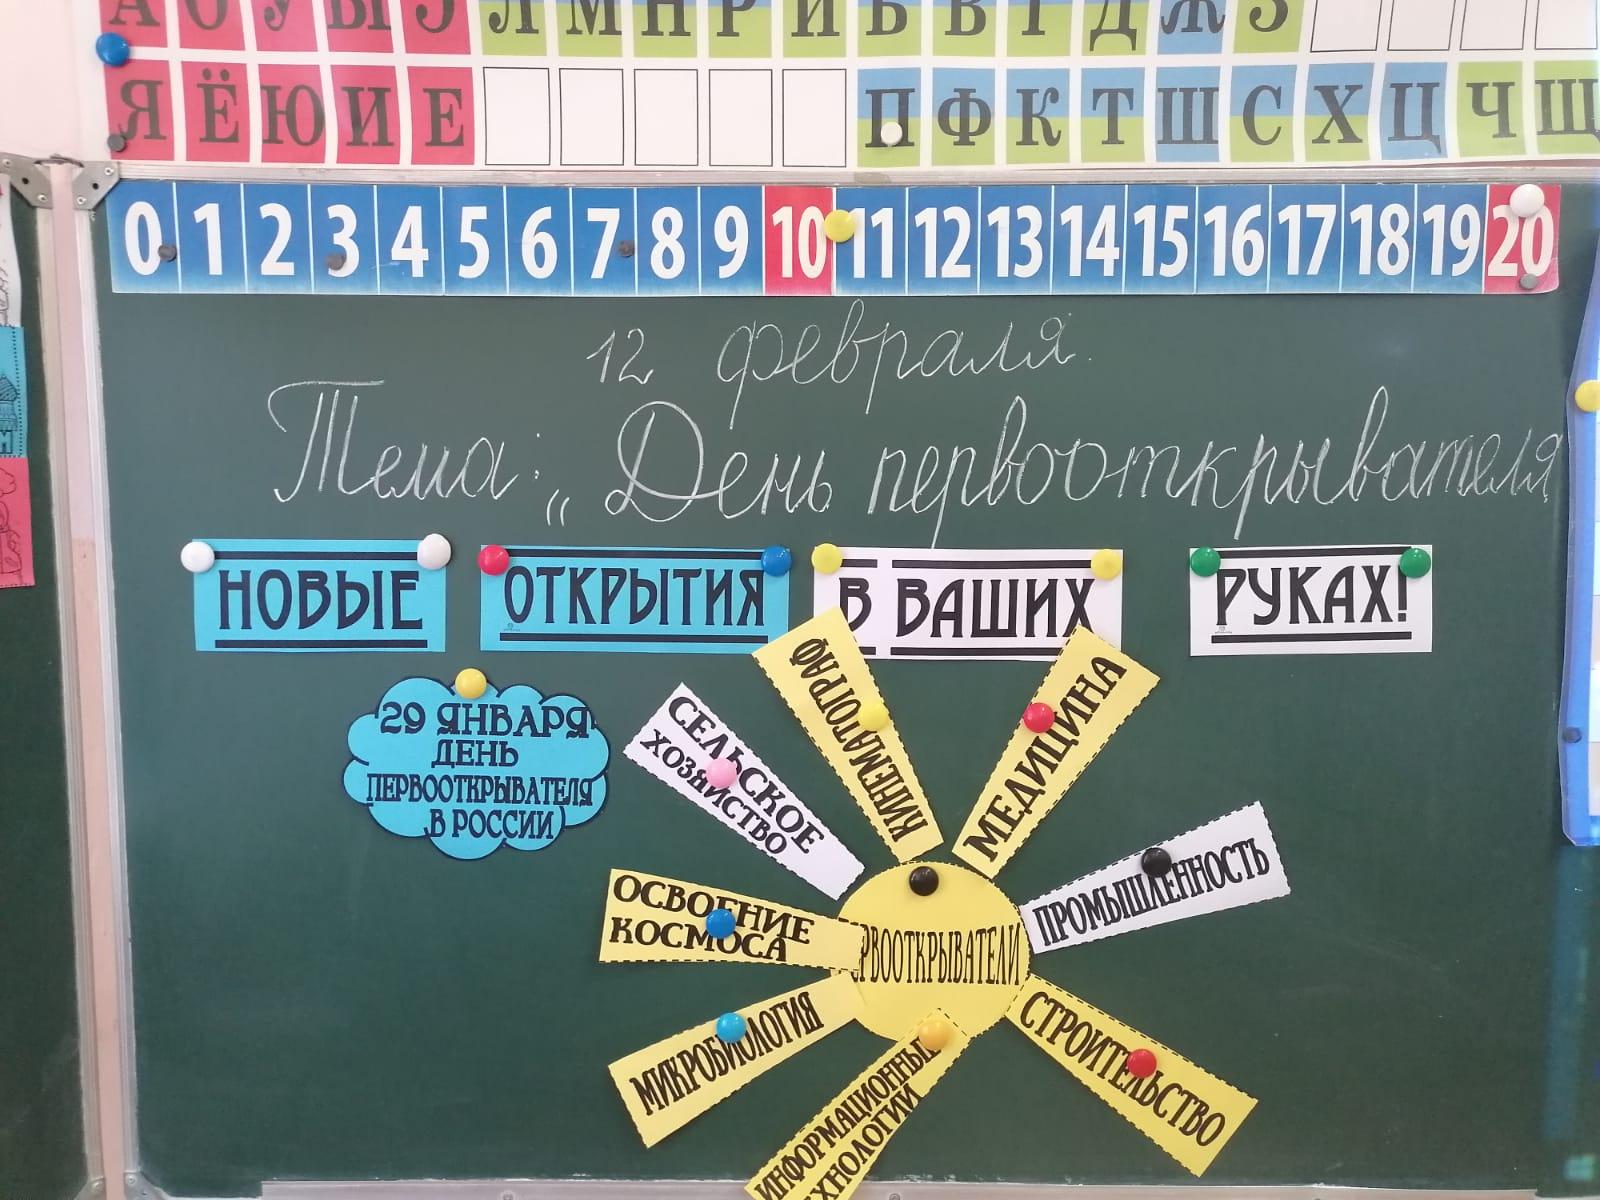 А О У Ы Э Л М Н Р Й Б В Г Д Ж З
Я Ё Ю И Е П Ф К Т Ш С Х Ц Ч Щ
0 1 2 3 4 5 6 7 8 9 10 11 12 13 14 15 16 17 18 19 20
12 февраля.
Тема: „День первооткрывателя
НОВЫЕ ОТКРЫТИЯ В ВАШИХ РУКАХ!
29 ЯНВАРЯ-
ДЕНЬ
ПЕРВООТКРЫВАТЕЛЯ
В РОССИИ
СЕЛЬСКОЕ
ХОЗЯЙСТВО
КИНЕМАТОГРАФ
МЕДИЦИНА
ПРОМЫШЛЕННОСТЬ
ОСВОЕНИЕ
КОСМОСА
ЕРВООТКРЫВАТЕЛИ
МИКРОБИОЛОГИЯ
ИНФОРМАЦИОННЫЕ
ЕХНОЛОГИИ
СТРОИТЕЛЬСТВО